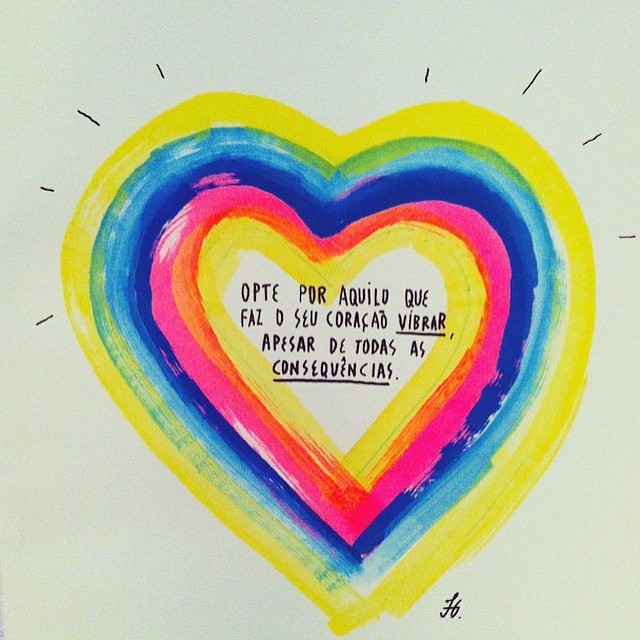 OPTE POR AQUILO QUE
FAZ O SEU CORAÇÃO VIBRAR,
APESAR DE TODAS AS
CONSEQUÊNCIAS.